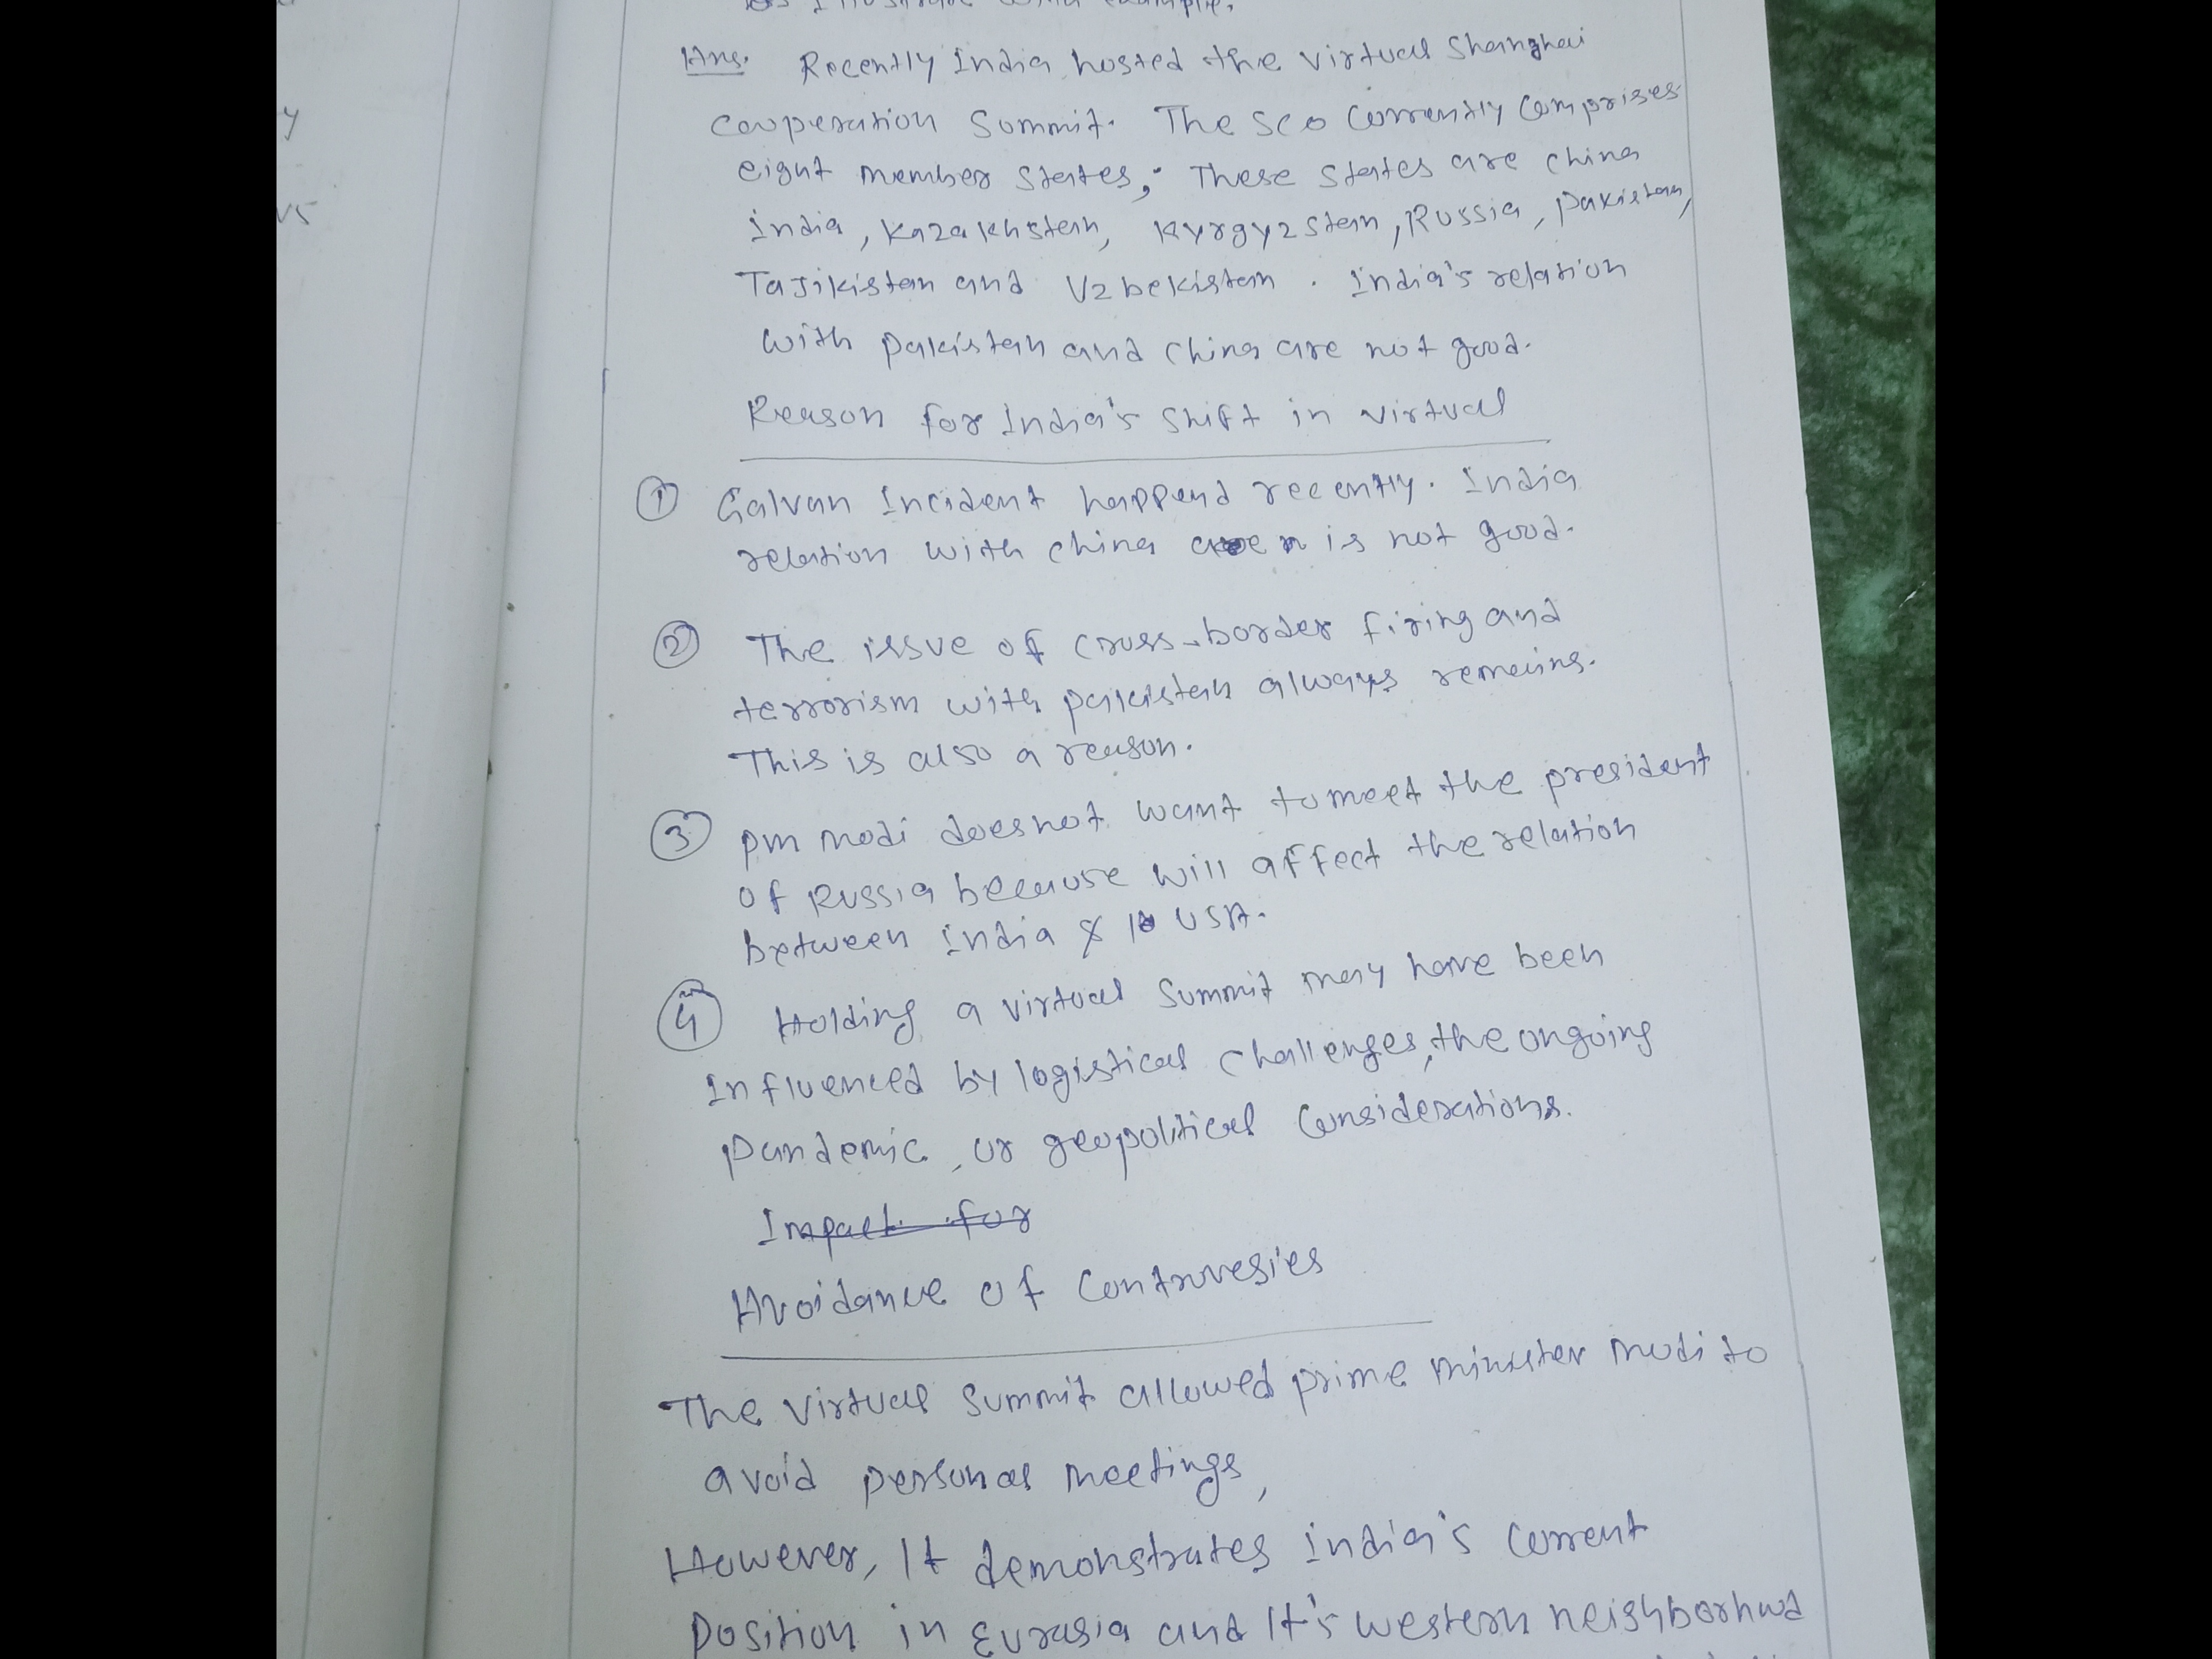 Illustrate with example.
Ans. Recently India hosted the virtual Shanghai
Cooperation Summit. The SCO Currently Comprises
eight member states, These states are china
india, Kazakhstan, Kyrgyzstan, Russia, Pakistan,
Tajikistan and Uzbekistan. India's relation
with pakistan and china are not good.
Reason for India's shift in virtual
① Galvan Incident happend recently. India
relation with china is not good.
② The issue of cross-border firing and
terrorism with pakistan always remains.
This is also a reason.
③ pm modi does not want to meet the president
of Russia because will affect the relation
between india & USA.
④ Holding a virtual summit may have been
Influenced by logistical challenges, the ongoing
pandemic, or geopolitical Considerations.
Impact for
Avoidance of Controvesies
The virtual summit allowed prime minister modi to
avoid personal meetings,
However, It demonstrates india's current
Position in Eurasia and It's western neighborhood
y
vs